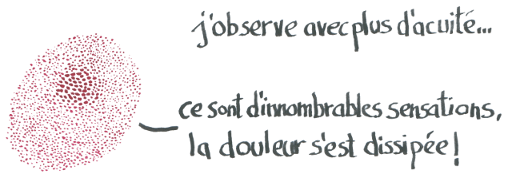 j'observe avec plus d'acuité...
ce sont d'innombrables sensations,
la douleur s'est dissipée!